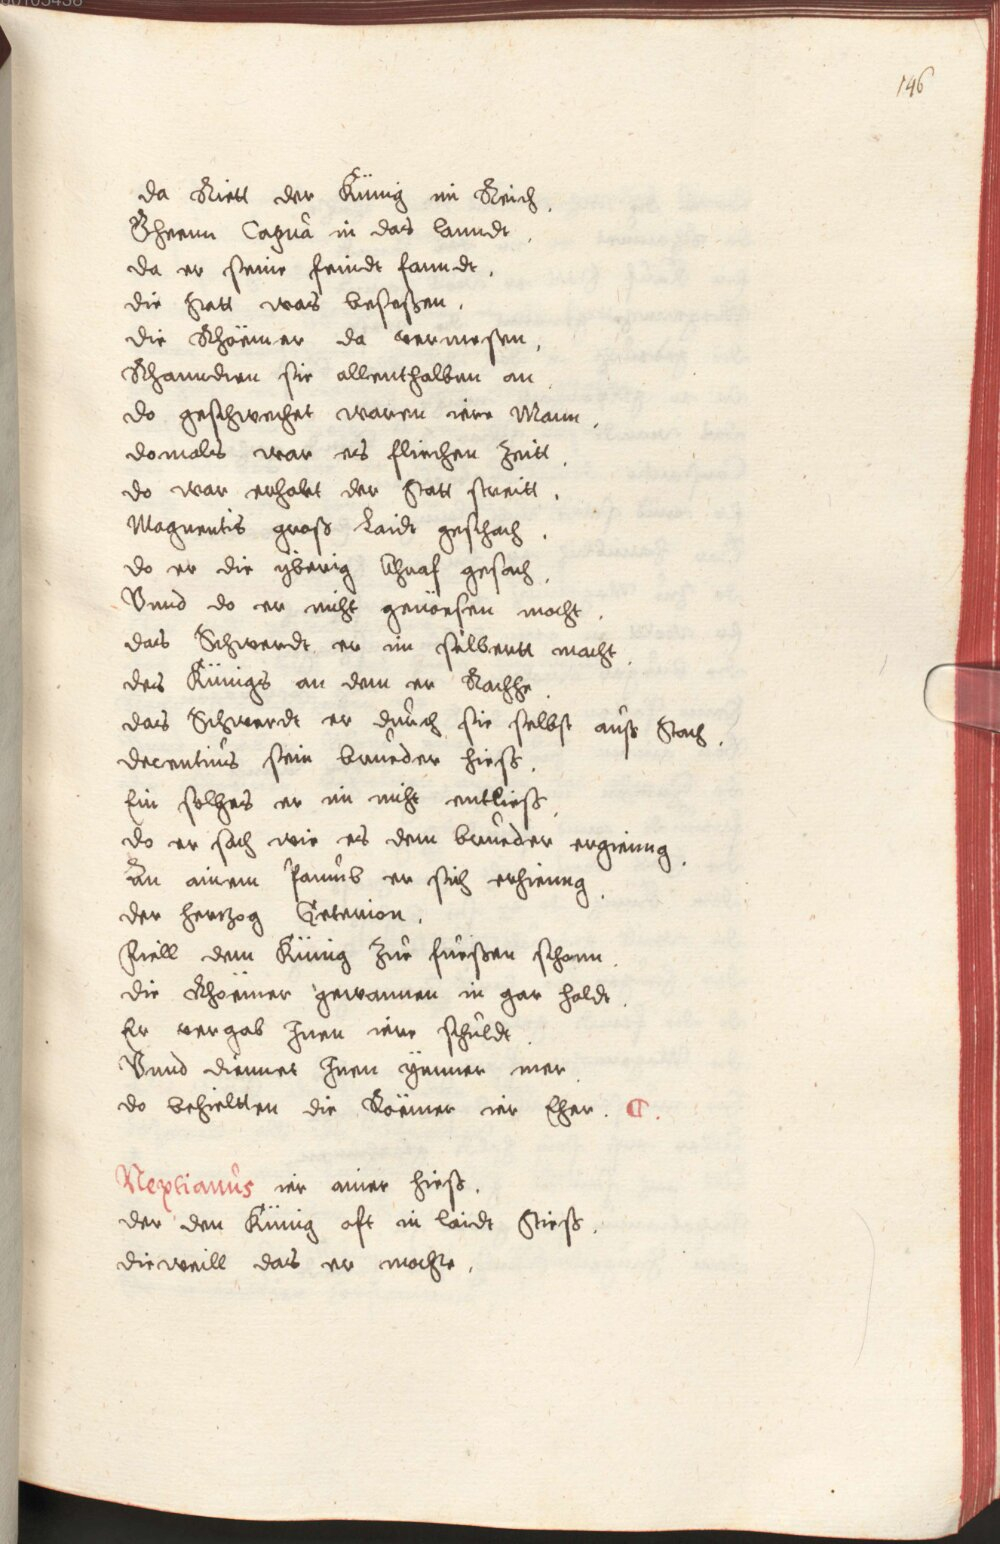 146
da Riett der Künig im Reich.
Gheenn Capua in das lanndt.
da er seine feindt fanndt.
die Statt was besessen.
die Rhöemer da vermesen.
Rhanndten sie allenthalben an.
do geschwechet waren iere Mann.
domals war es fliechen Zeitt.
do war erhabt der Statt streitt.
Magnentis gross Laidt geschach.
do er die yberig Chraf gesach.
Vnnd do er nicht genöesen mocht.
das Schwerdt er im selbertt macht.
des Künigs an dem er Rachhe.
das Schwerdt er durch sie selbst auss Stach.
decentius sein bruoder hiess.
Ein solhes er im nicht entliess.
do er sach wie es dem bruoder ergieng.
An ainem Pamb er sich erhieng.
der hertzog Geterion.
Fiell dem Künig zue füessen schonn.
die Rhöemer gewannen in gar holdt.
Er vergab Inen iere schuldt.
Vnnd diennet Inen ymmer mer.
do behieltten die Röemer ier Eher.
Neptianus ier ainer hiess.
der den Künig oft in laidt Stiess.
dieweill das er mochte.